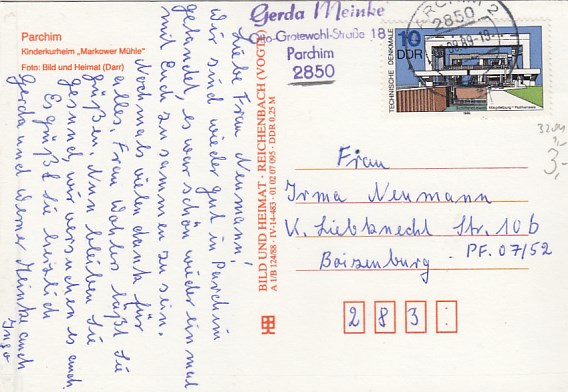 Parchim
Kinderkurheim „Markower Mühle"
Foto: Bild und Heimat (Darr)
Liebe Frau Neumann!
Wir sind wieder gut in Parchim
gelandet, es war schön wieder einmal
mit Euch zusammen zu sein.
Nochmals vielen Dank für
alles, Frau Wahls läßt Sie
grüßen. Nun bleiben Sie
gesund, wir versuchen es auch.
Es grüßt Sie herzlich
Gerda und Werner Meinke auch
Ingo
BILD UND HEIMAT · REICHENBACH (VOGTL)
A 1/B 124/88 · IV-14-483 · 01 02 07 095 · DDR 0,25 M
Gerda Meinke
Otto-Grotewohl-Straße 18
Parchim
2850
PARCHIM 2
2850
TECHNISCHE DENKMALE
10
DDR
Magdeburg-Rothensee
1988
3,-
Frau
Irma Neumann
K. Liebknecht Str. 106
Boizenburg. PF. 07/52
2 8 3 :